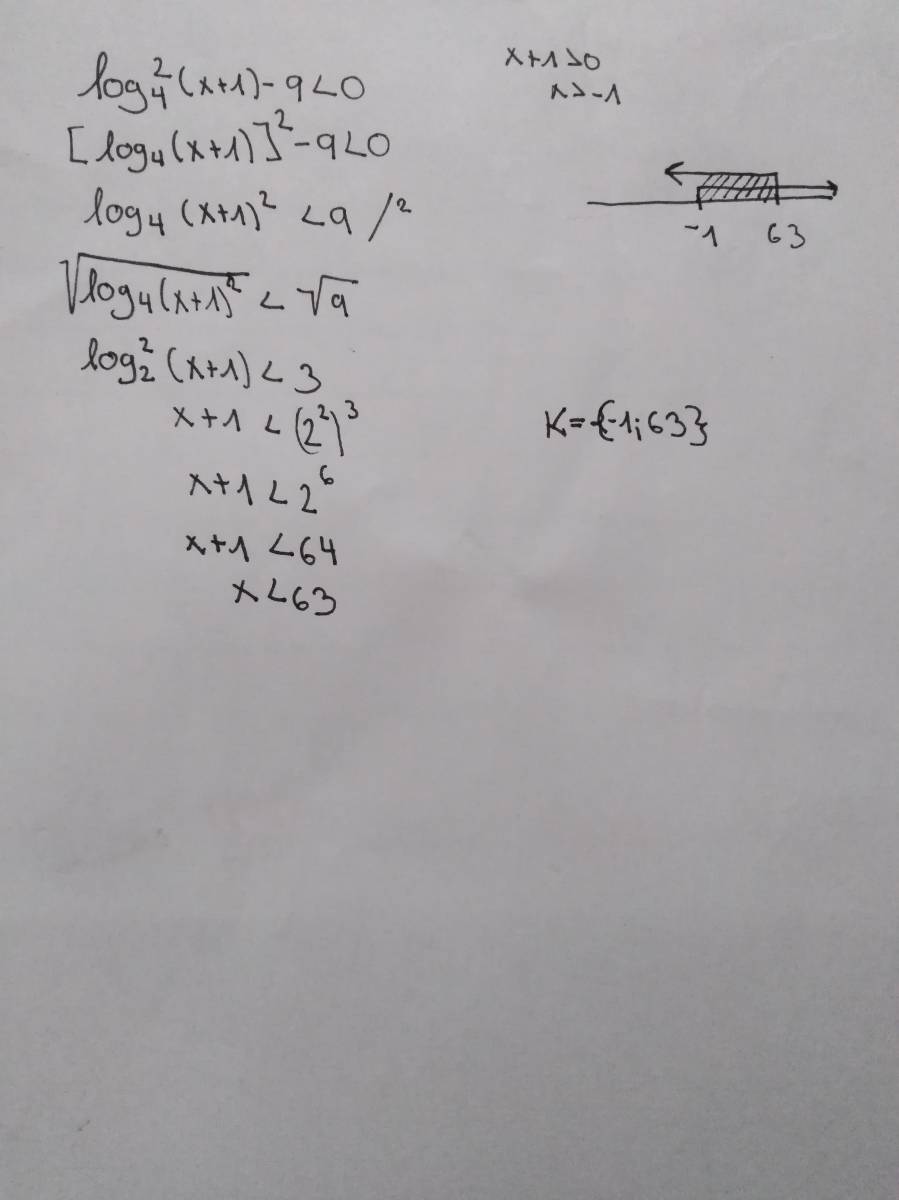 log₄²(x+1)-9<0
[log₄(x+1)]²-9<0
log₄(x+1)²<9 /²
√log₄(x+1)² < √9
log₂²(x+1)<3
x+1<(2²)³
x+1<2⁶
x+1<64
x<63
x+1>0
x>-1
-1 63
K={-1;63}